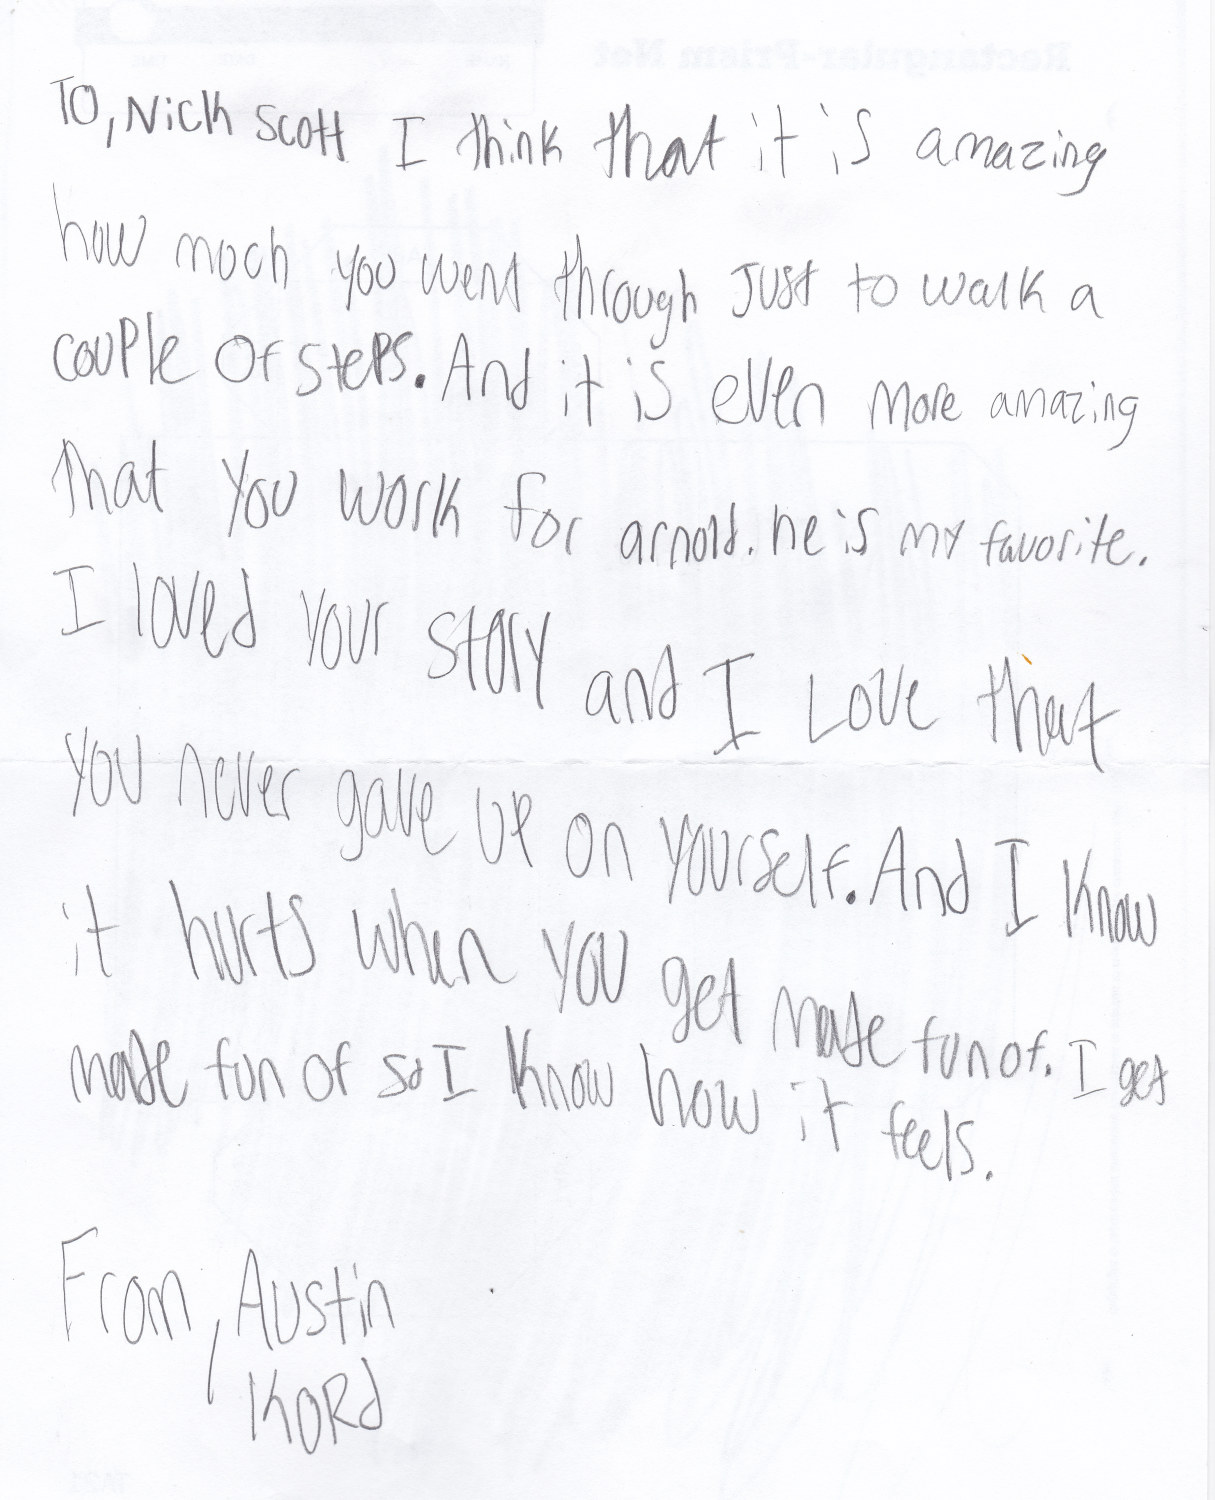 Rectangular-Prism Net
TO, Nick Scott I think that it is amazing
how moch you went through Just to walk a
couple Of steps. And it is even more amazing
that you work for arnold. he is my favorite.
I loved your story and I Love that
you never gave up on yourself. And I Know
it hurts when you get made fun of. I get
made fun Of so I Know how it feels.
From, Austin
KORd